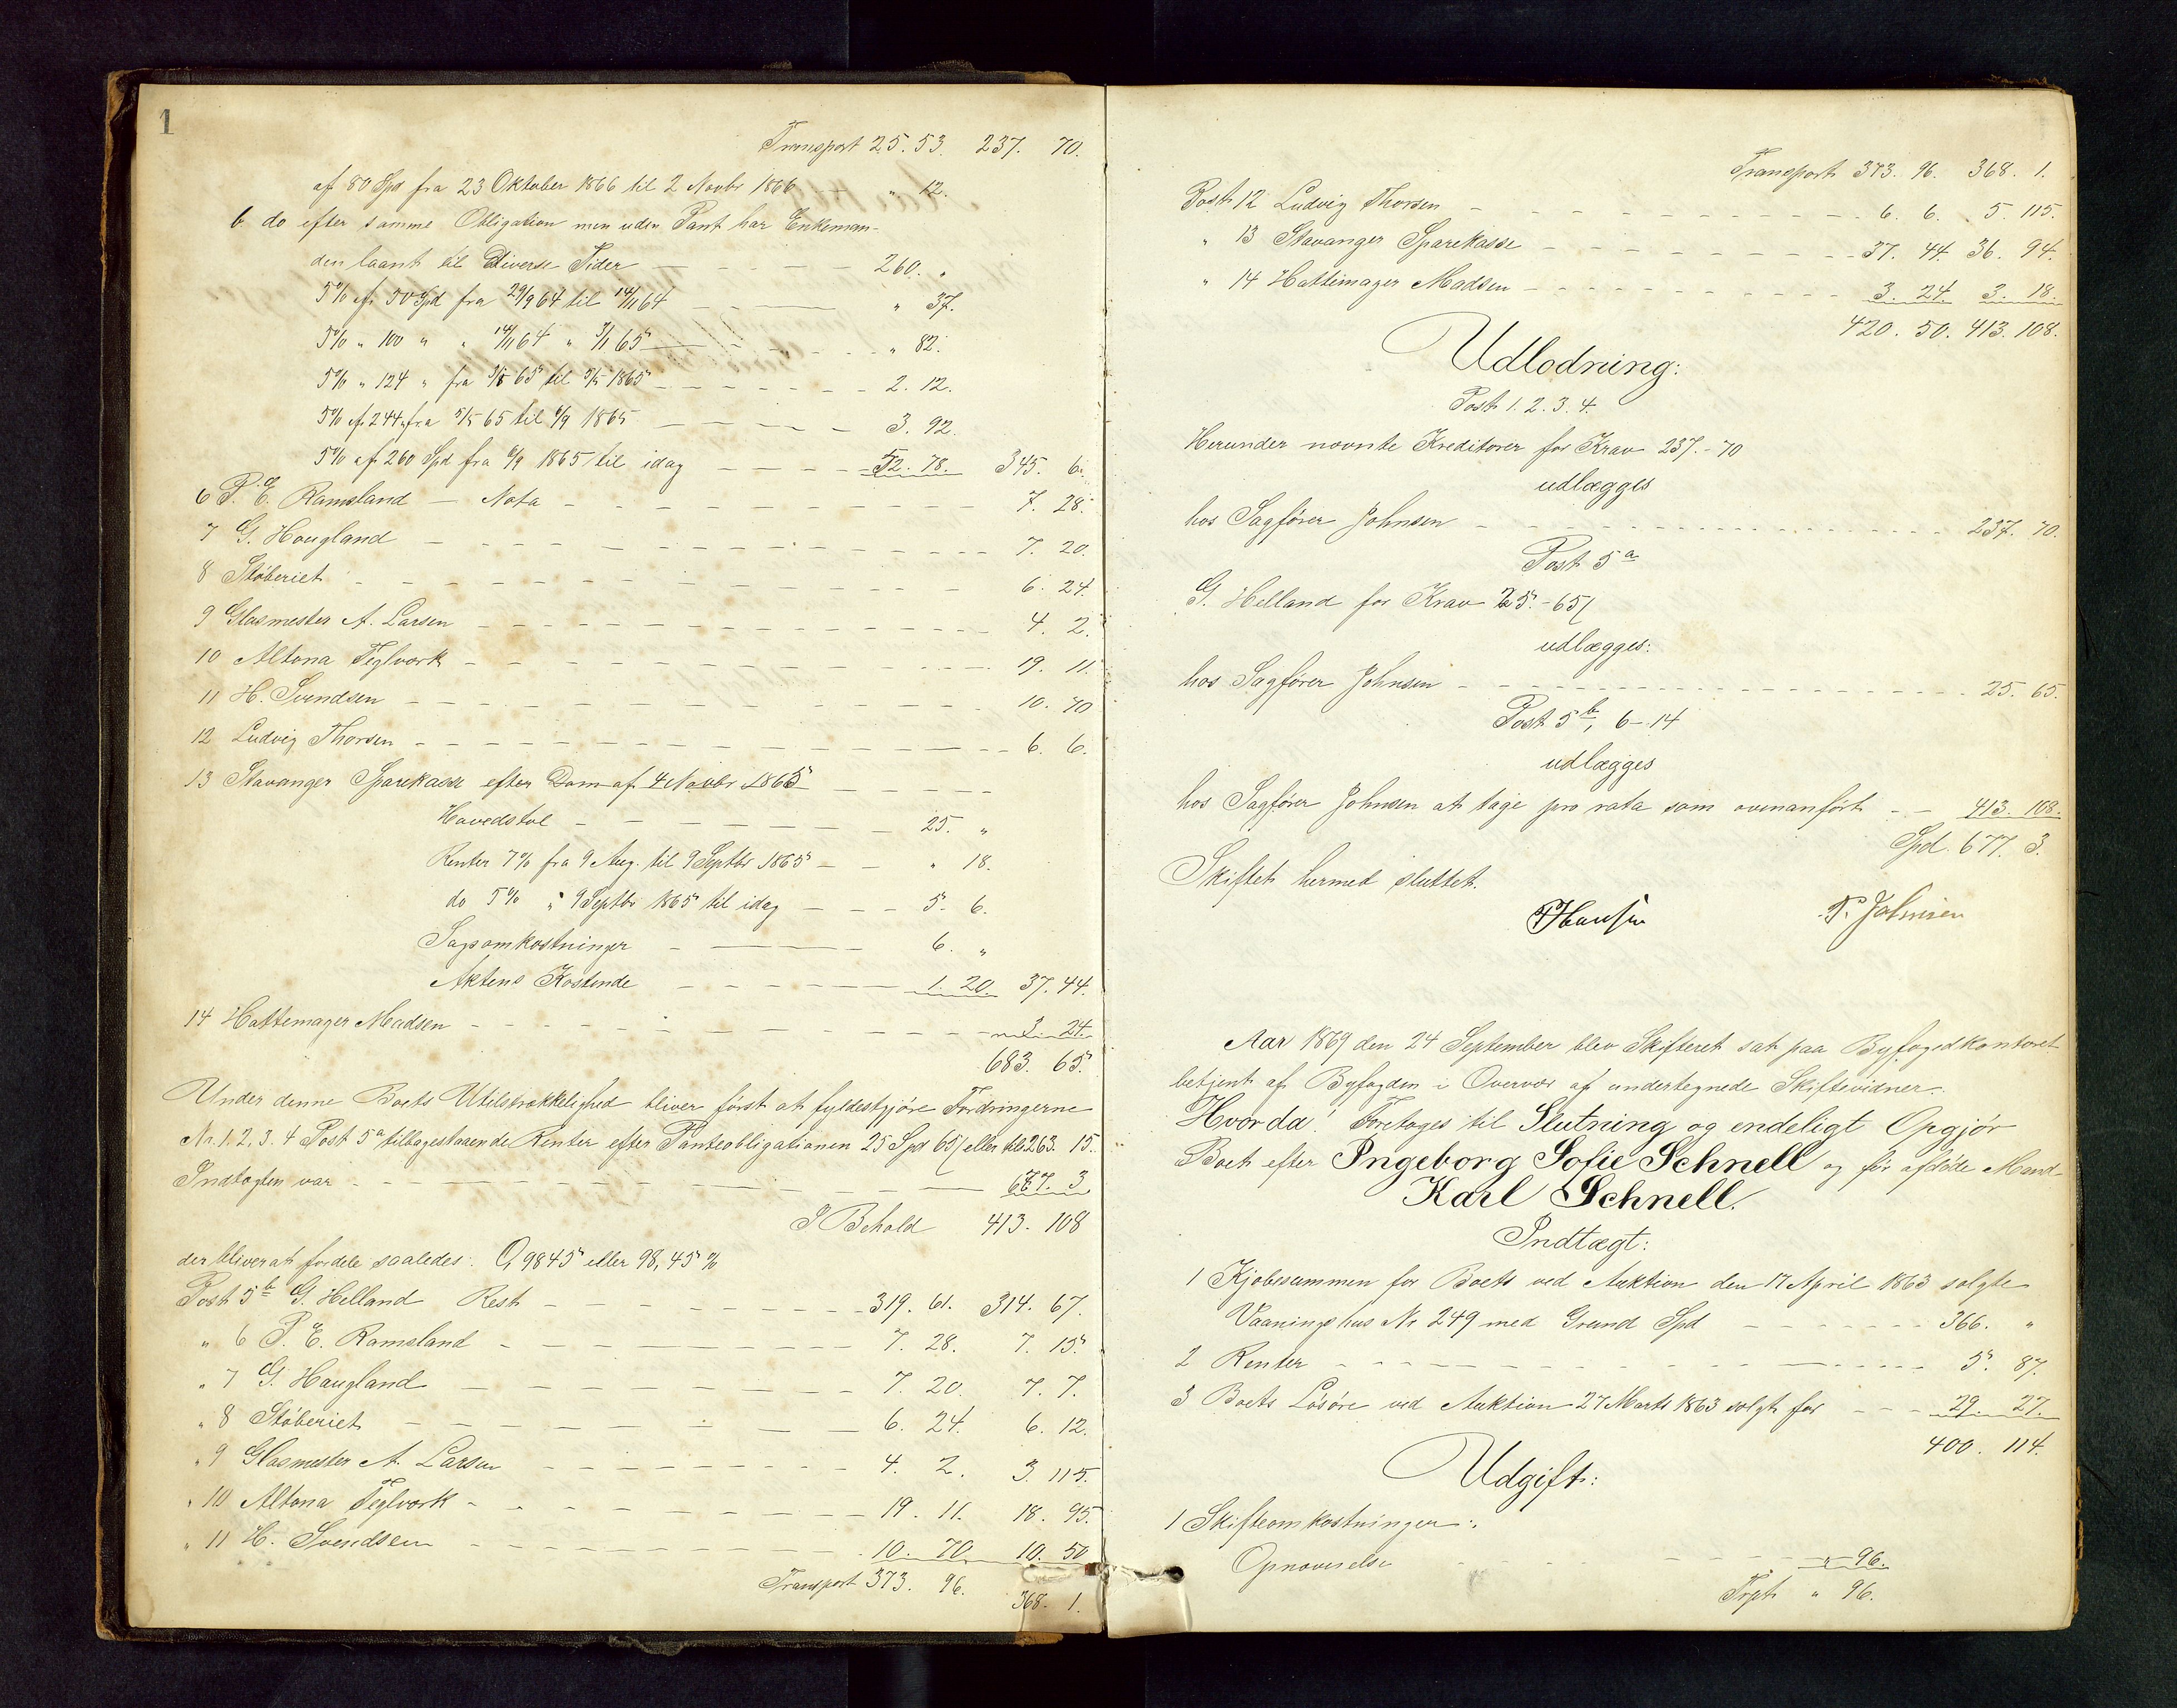 1
Transport 25. 53. 237. 70.
af 80 Spd fra 23 Oktober 1866 til 2 Novbr 1866 " 12.
b. do efter samme Obligation men uden Pant har Enkeman-
den laant til Diverse Tider — 260. "
5% af 50 Spd fra 29/9 64 til 14/11 64 — " 37.
5% " 100 " " 14/11 64 " 3/1 65 — " 82.
5% " 124 " fra 3/1 65 til 5/5 1865 — 2. 12.
5% af 244 fra 5/5 65 til 6/9 1865 — 3. 92.
5% af 260 Spd fra 6/9 1865 til idag — 52. 78. 345. 6.
6 P. E. Ramsland — Nota — 7. 28.
7 G. Hougland — 7. 20.
8 Støberiet — 6. 24.
9 Glasmester A. Larsen — 4. 2.
10 Altona Teglværk — 19. 11.
11 H. Svendsen — 10. 70
12 Ludvig Thorsen — 6. 6.
13 Stavanger Sparekasse efter Dom af 4 Novbr 1865 —
Hovedstol — 25. "
Renter 7% fra 9 Aug. til 9 Septbr 1865 — " 18.
do 5% " 9 Septbr 1865 til idag — 5. 6.
Sagsomkostninger — 6. "
Aktens Kostende — 1. 20. 37. 44.
14 Hattemager Madsen — 3. 24.
683. 65.
Under denne Boets Utilstrækkelighed bliver først at fyldestgjøre Fordringerne
No. 1. 2. 3. 4 Post 5a tilbagestaaende Renter efter Panteobligationen 25 Spd 65/ eller tils 263. 15.
Indtægten var — 677. 3
I Behold 413. 108
der bliver at fordele saaledes: 0,9845 eller 98,45 %
Post 5b G. Helland Rest — 319. 61. 314. 67.
" 6 P. E. Ramsland — 7. 28. 7. 15.
" 7 G. Haugland — 7. 20. 7. 7.
" 8 Støberiet — 6. 24. 6. 12.
" 9 Glasmester A. Larsen — 4. 2. 3. 115.
" 10 Altona Teglværk — 19. 11. 18. 95.
" 11 H. Svendsen — 10. 70. 10. 50
Transport 373. 96. 368. 1.
Transport 373. 96. 368. 1.
Post 12 Ludvig Thorsen — 6. 6. 5. 115.
" 13 Stavanger Sparekasse — 37. 44. 36. 94.
" 14 Hattemager Madsen — 3. 24. 3. 18.
420. 50. 413. 108.
Udlodning:
Post 1. 2. 3. 4.
Herunder nævnte Kreditorer for Krav 237. - 70
udlægges
hos Sagfører Johnsen — 237. 70.
Post 5a
G. Helland for Krav 25. - 65/
udlægges:
hos Sagfører Johnsen — 25. 65.
Post 5b, 6 - 14
udlægges
hos Sagfører Johnsen at tage pro rata som ovenanført — 413. 108.
Spd. 677. 3.
Skiftet hermed sluttet.
Hansen P. Johnsen
Aar 1869 den 24 September blev Skifteret sat paa Byfogedkontoret
betjent af Byfogden i Overvær af undertegnede Skiftevidner.
Hvor da! Foretoges til Slutning og endeligt Opgjør
Boet efter Ingeborg Sofie Schnell og før afdøde Mand
Karl Schnell.
Indtægt:
1 Kjøbesummen for Boets ved Auktion den 17 April 1863 solgte
Vaaningshus No 249 med Grund Spd — 366. "
2 Renter — 5. 87.
3 Boets Løsøre ved Auktion 27 Marts 1863 solgt for — 29. 27.
400. 114.
Udgift:
1 Skifteomkostninger:
Opnævnelse — " 96.
Trpt. " 96.